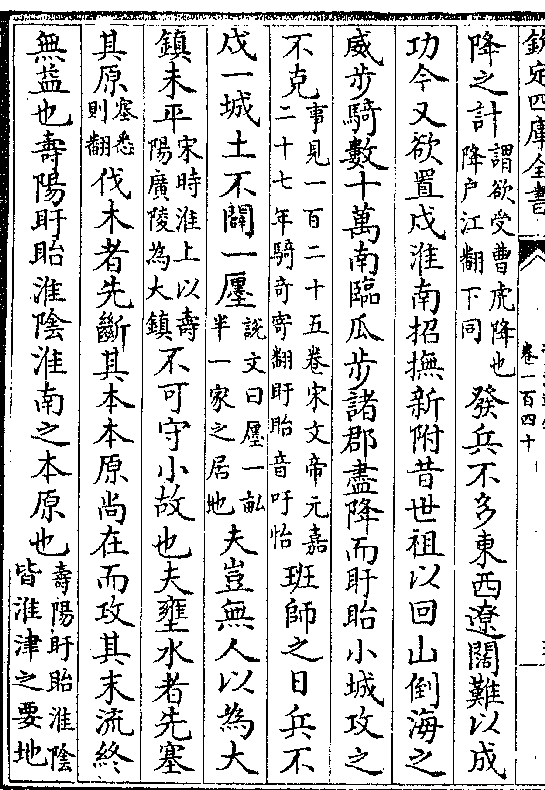 欽定四庫全書
卷一百四十
降之計謂欲受曹虎降也降户江翻下同發兵不多東西遼闊難以成
功今又欲置戍淮南招撫新附昔世祖以回山倒海之
威步騎數十萬南臨瓜步諸郡盡降而盱眙小城攻之
不克事見一百二十五卷宋文帝元嘉二十七年騎奇寄翻盱眙音吁怡班師之日兵不
戍一城土不闢一㕓說文曰㕓一畝半一家之居地夫豈無人以為大
鎮未平宋時淮上以壽陽廣陵為大鎮不可守小故也夫壅水者先塞
其原塞悉則翻伐木者先斷其本本原尚在而攻其末流終
無益也壽陽盱眙淮陰淮南之本原也壽陽盱眙淮陰皆淮津之要地